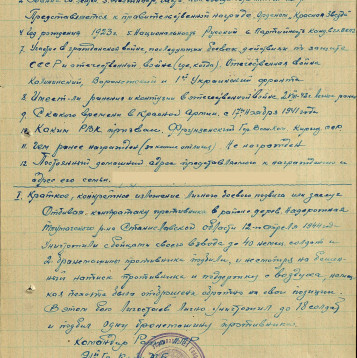 Представляется к правительственной награде Орденом "Красная Звезда"
4. Год рождения 1923 г. 5. Национальность Русский 6. Партийность
7. Участие в гражданской войне, последующих боевых действиях по защите
СССР и отечественной войне (где, когда). Отечественная война
Калининский, Воронежский и 1й Украинский фронта
8. Имеет ли ранения и контузии в отечественной войне
9. С какого времени в Красной Армии. с 17 ноября 1941 года
10. Каким РВК призван. Фрунзенский
11. Чем ранее награжден (за какие отличия) Не награжден
12. Постоянный домашний адрес представляемого к награждению и
адрес его семьи.
I. Краткое, конкретное изложение личного боевого подвига или заслуг
Отбивая контратаку противника в районе дерев.
Станиславской области 12 апреля 1944 г.
Уничтожил с бойцами своего взвода до 40 немец. солдат и
2 бронемашины противника подбил, и несмотря на
натиск противника и поддержку с воздуха,
пехота была отброшена обратно на свои позиции.
В этом бою лично уничтожил до 18 солдат
и подбил одну бронемашину противника.
Командир